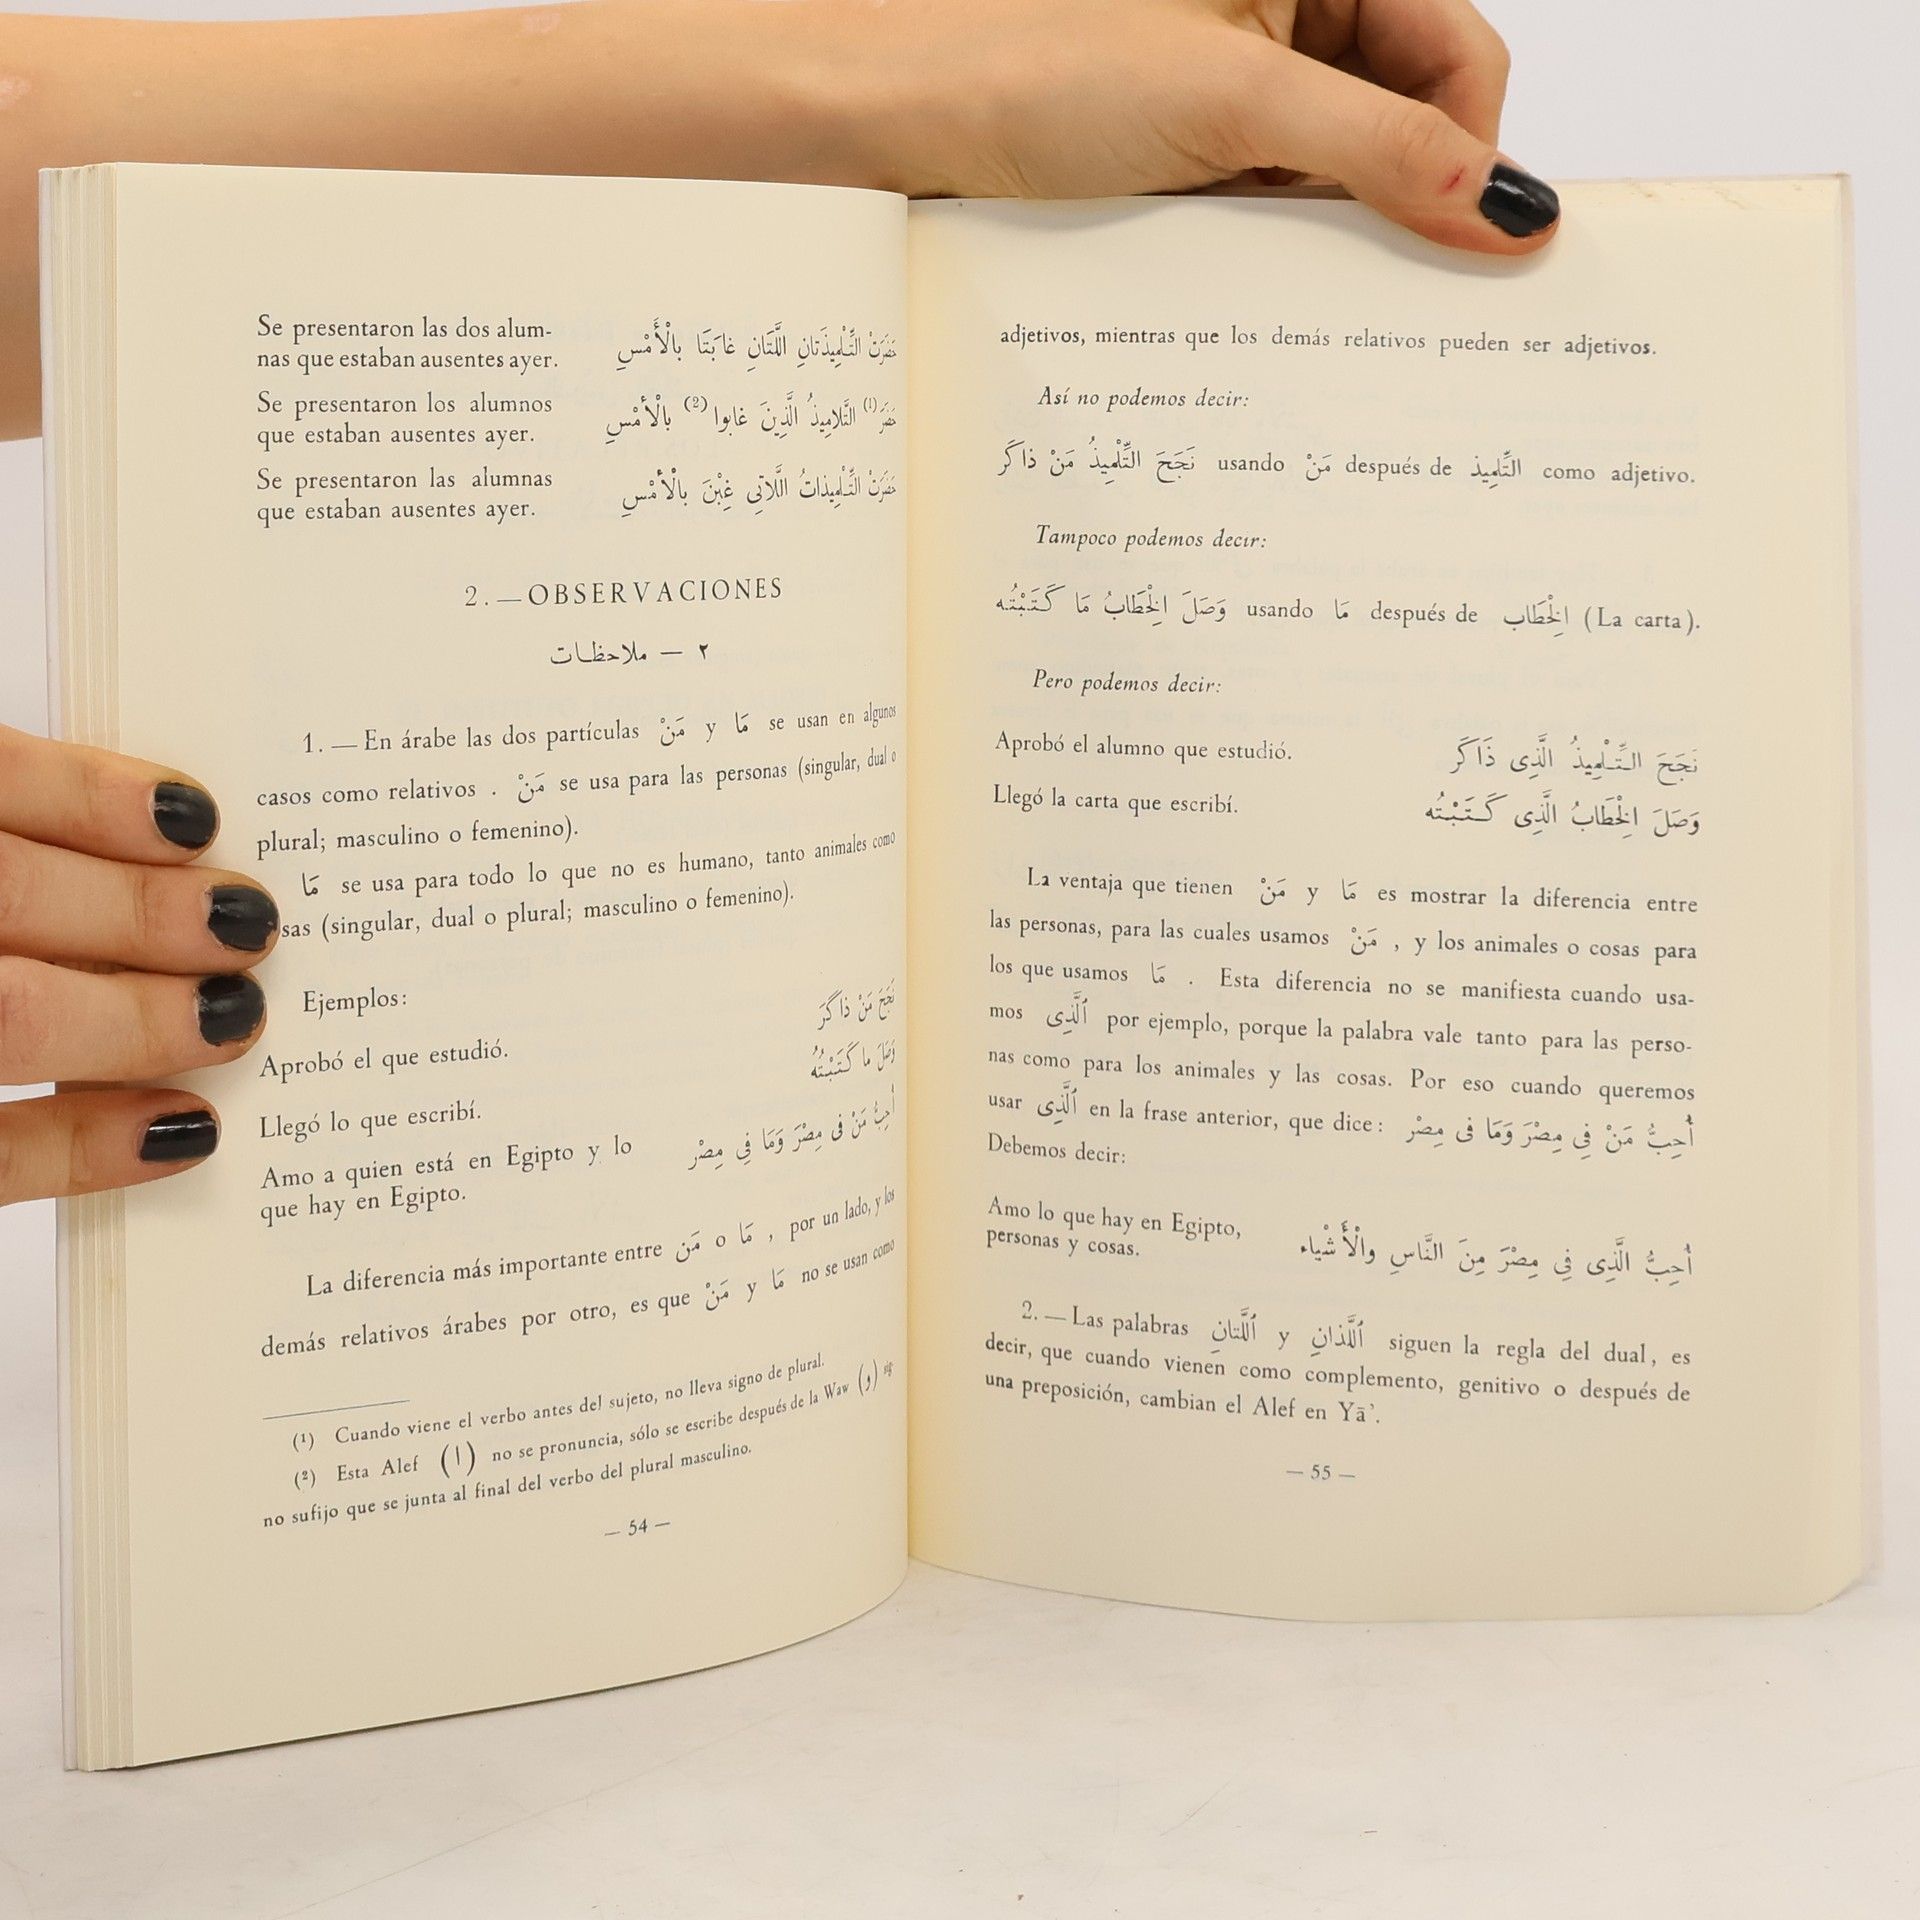 Se presentaron las dos alum-
nas que estaban ausentes ayer.
حَضَرَتْ التِّلْمِيذَتانِ اللَّتَانِ غابَتَا بالْأَمْسِ
Se presentaron los alumnos
que estaban ausentes ayer.
حَضَرَ (1) التَّلامِيذُ الَّذِينَ غابوا (2) بالْأَمْسِ
Se presentaron las alumnas
que estaban ausentes ayer.
حَضَرَتْ التِّلْمِيذاتُ اللَّاتِي غِبْنَ بالْأَمْسِ
2. — OBSERVACIONES
٢ — ملاحظـات
1. — En árabe las dos partículas مَنْ y مَا se usan en algunos
casos como relativos . مَنْ se usa para las personas (singular, dual o
plural; masculino o femenino).
مَا se usa para todo lo que no es humano, tanto animales como
sas (singular, dual o plural; masculino o femenino).
Ejemplos:
Aprobó el que estudió. نَجَحَ مَنْ ذاكَرَ
Llegó lo que escribí. وَصَلَ ما كَتَبْتُهُ
Amo a quien está en Egipto y lo
que hay en Egipto.
أُحِبُّ مَنْ فى مِصْرَ وَمَا فِي مِصْر
La diferencia más importante entre مَن o مَا , por un lado, y los
demás relativos árabes por otro, es que مَنْ y مَا no se usan como
(1) Cuando viene el verbo antes del sujeto, no lleva signo de plural.
(2) Esta Alef (ا) no se pronuncia, sólo se escribe después de la Waw (و) sig-
no sufijo que se junta al final del verbo del plural masculino.
— 54 —
adjetivos, mientras que los demás relativos pueden ser adjetivos.
Así no podemos decir:
نَجَحَ التِّلْمِيذُ مَنْ ذاكَر usando مَنْ después de التِّلمِيذ como adjetivo.
Tampoco podemos decir:
وَصَلَ الْخِطَابُ مَا كَتَبْتُه usando مَا después de الْخِطَاب (La carta).
Pero podemos decir:
Aprobó el alumno que estudió. نَجَحَ التِّـلْمِيذُ الَّذِى ذَاكَرَ
Llegó la carta que escribí. وَصَلَ الْخِطَابُ الَّذِى كَـتَـبْـتُه
La ventaja que tienen مَنْ y مَا es mostrar la diferencia entre
las personas, para las cuales usamos مَنْ , y los animales o cosas para
los que usamos مَا . Esta diferencia no se manifiesta cuando usa-
mos ٱلَّذِى por ejemplo, porque la palabra vale tanto para las perso-
nas como para los animales y las cosas. Por eso cuando queremos
usar ٱلَّذِى en la frase anterior, que dice: أُحِبُّ مَنْ فِي مِصْرَ وَمَا فى مِصْر
Debemos decir:
Amo lo que hay en Egipto,
personas y cosas.
أُحِبُّ الَّذِى فِي مِصْرَ مِنَ النَّاسِ والْأَشْياء
2. — Las palabras ٱللَّتانِ y ٱللَّذانِ siguen la regla del dual, es
decir, que cuando vienen como complemento, genitivo o después de
una preposición, cambian el Alef en Yā’.
— 55 —